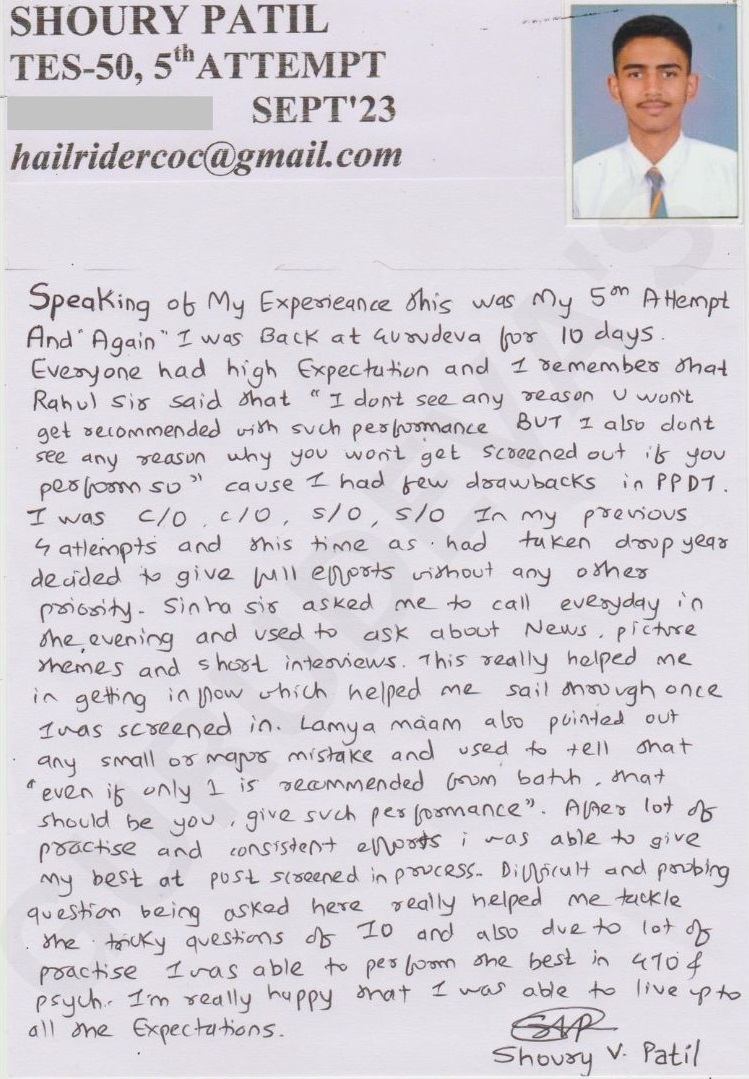 SHOURY PATIL
TES-50, 5th ATTEMPT
SEPT'23
hailridercoc@gmail.com
Speaking of My Experieance this was My 5th Attempt
And "Again" I was Back at Gurudeva for 10 days.
Everyone had high Expectation and I remember that
Rahul sir said that "I dont see any reason u won't
get recommended with such performance BUT I also dont
see any reason why you won't get screened out if you
perform so" cause I had few drawbacks in PPDT.
I was C/O, C/O, S/O, S/O In my previous
4 attempts and this time as had taken drop year
decided to give full efforts without any other
priority. Sinha sir asked me to call everyday in
the evening and used to ask about News, picture
themes and short interviews. This really helped me
in getting in flow which helped me sail through once
I was screened in. Lamya maam also pointed out
any small or major mistake and used to tell that
"even if only 1 is recommended from batch, that
should be you, give such performance". After lot of
practise and consistent efforts i was able to give
my best at post screened in process. Difficult and probing
question being asked here really helped me tackle
the tricky questions of IO and also due to lot of
practise I was able to perform the best in GTO &
psych. I'm really happy that I was able to live up to
all the Expectations.
SVP
Shoury V. Patil
GURUDEVA'S